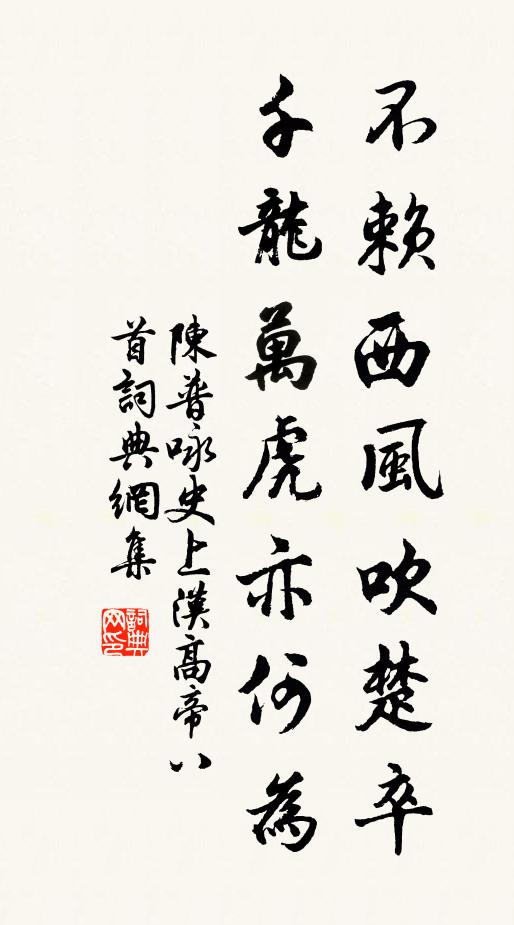 不賴西風吹楚卒
千龍萬虎亦何為
陳普咏史上漢高帝八
首詞典網集
詞典
网印